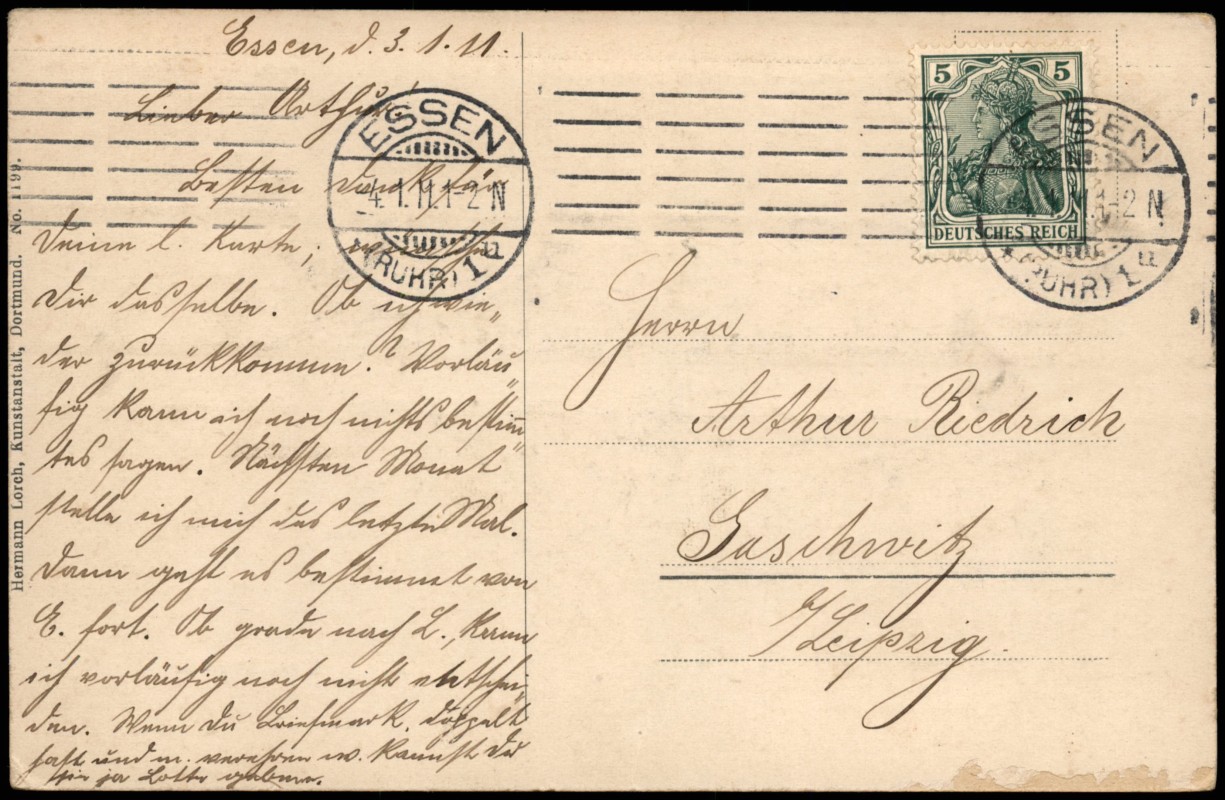 Essen, d. 3. 1. 11.
Lieber Arthur!
Besten Dank für
Deine l. Karte; wünsche
Dir dasselbe. Ob ich wie„
der zurückkomme? Vorläu„
fig kann ich noch nichts bestimm„
tes sagen. Nächsten Monat
stelle ich mich das letzte Mal.
Dann geht es bestimmt von
E. fort. Ob grade nach L., kann
ich vorläufig noch nicht entschei„
den. Wenn Du Briefmark. doppelt
hast und m. verehren w. kannst Du
sie ja Lotte geben.
Hermann Lorch, Kunstanstalt, Dortmund. No. 1199.
ESSEN
4.1.11.1-2 N
*(RUHR) 1 u
5 5
DEUTSCHES REICH
ESSEN
4.1.11.1-2 N
*(RUHR) 1 u
Herrn
Arthur Riedrich
Gaschwitz
b/Leipzig.